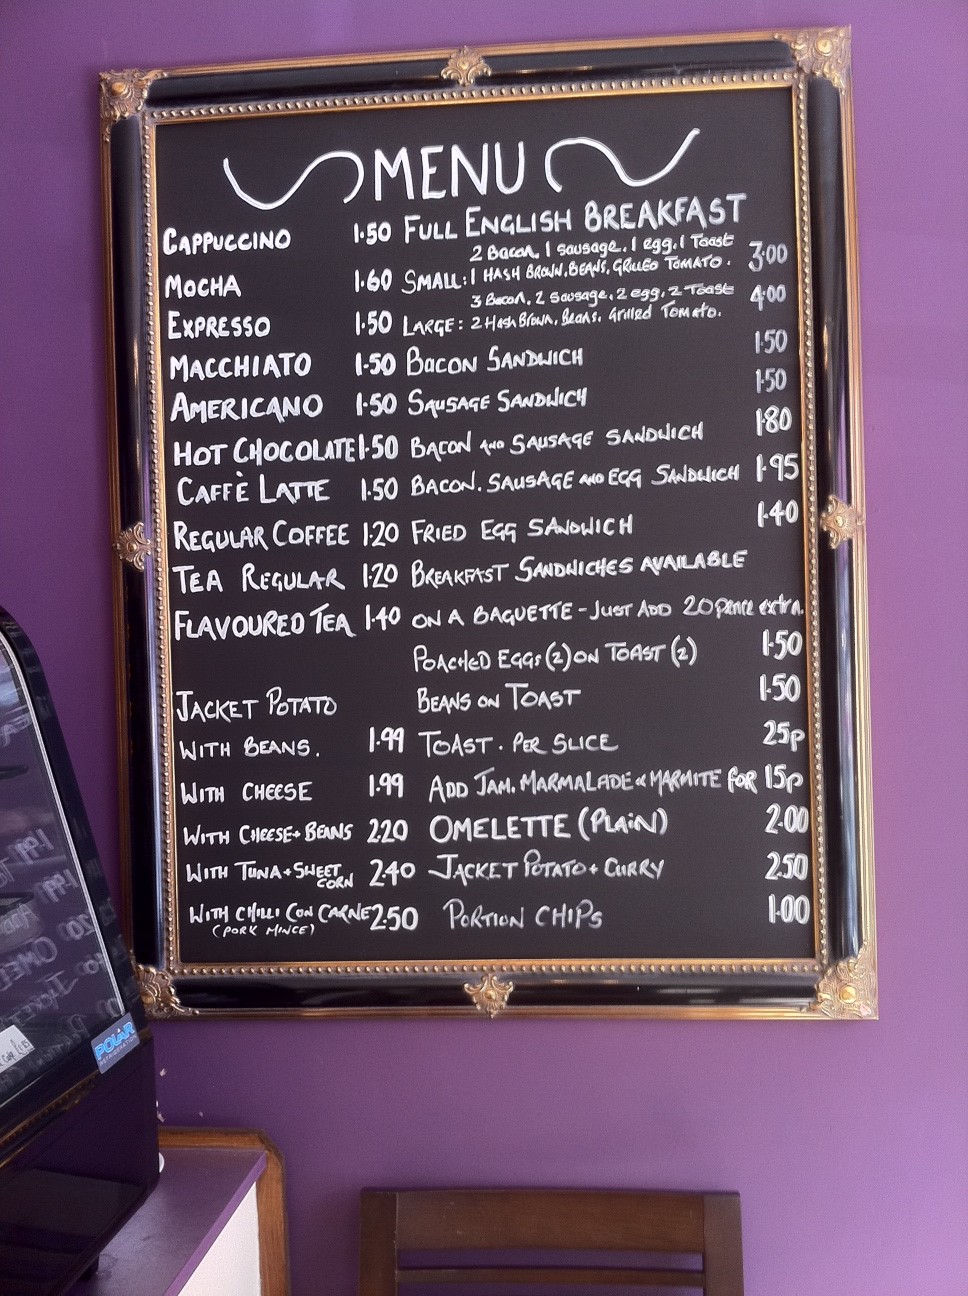 MENU
CAPPUCCINO 1.50
MOCHA 1.60
EXPRESSO 1.50
MACCHIATO 1.50
AMERICANO 1.50
HOT CHOCOLATE 1.50
CAFFÈ LATTE 1.50
REGULAR COFFEE 1.20
TEA REGULAR 1.20
FLAVOURED TEA 1.40
JACKET POTATO
WITH BEANS. 1.99
WITH CHEESE 1.99
WITH CHEESE + BEANS 2.20
WITH TUNA + SWEET CORN 2.40
WITH CHILLI CON CARNE 2.50
(PORK MINCE)
FULL ENGLISH BREAKFAST
2 Bacon, 1 sausage, 1 egg, 1 Toast
SMALL: 1 HASH BROWN, BEANS, GRILLED TOMATO. 3.00
3 Bacon, 2 sausage, 2 egg, 2 Toast
LARGE: 2 Hash Brown, Beans, Grilled Tomato. 4.00
BACON SANDWICH 1.50
SAUSAGE SANDWICH 1.50
BACON AND SAUSAGE SANDWICH 1.80
BACON, SAUSAGE AND EGG SANDWICH 1.95
FRIED EGG SANDWICH 1.40
BREAKFAST SANDWICHES AVAILABLE
ON A BAGUETTE - JUST ADD 20 pence extra.
POACHED EGGS (2) ON TOAST (2) 1.50
BEANS ON TOAST 1.50
TOAST. PER SLICE 25p
ADD JAM, MARMALADE & MARMITE FOR 15p
OMELETTE (PLAIN) 2.00
JACKET POTATO + CURRY 2.50
PORTION CHIPS 1.00
POLAR
REFRIGERATION